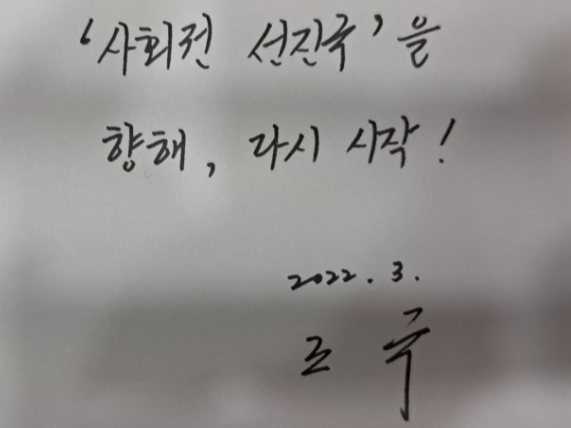 '사회적 선진국'을
향해, 다시 시작!
2022. 3.
조국